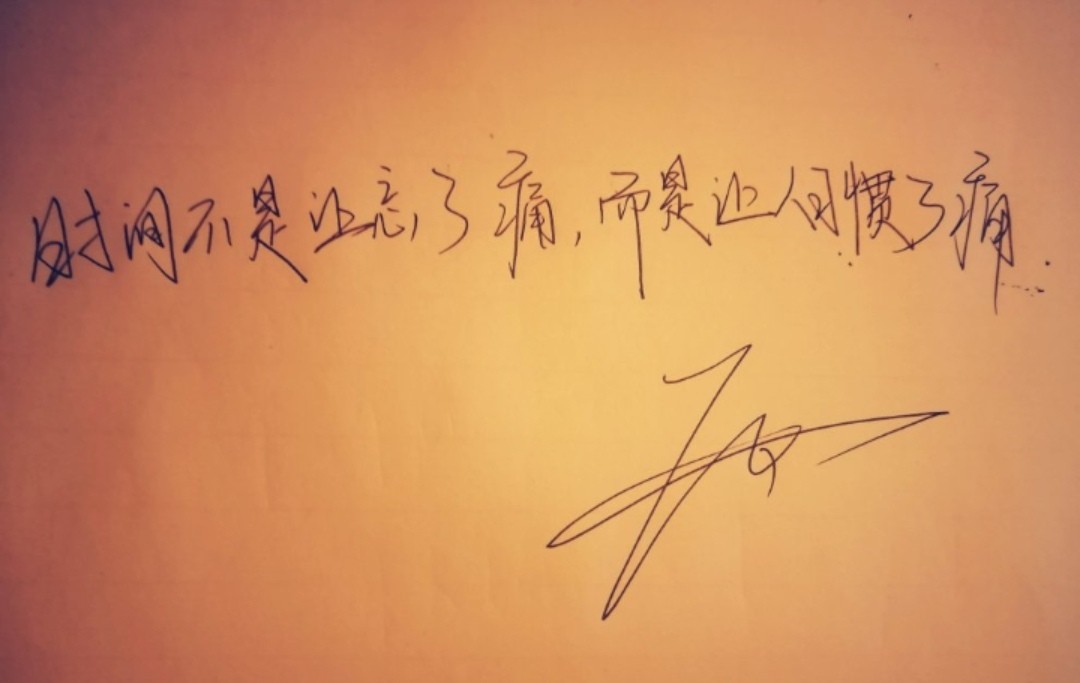 时间不是让忘了痛,而是让人习惯了痛.